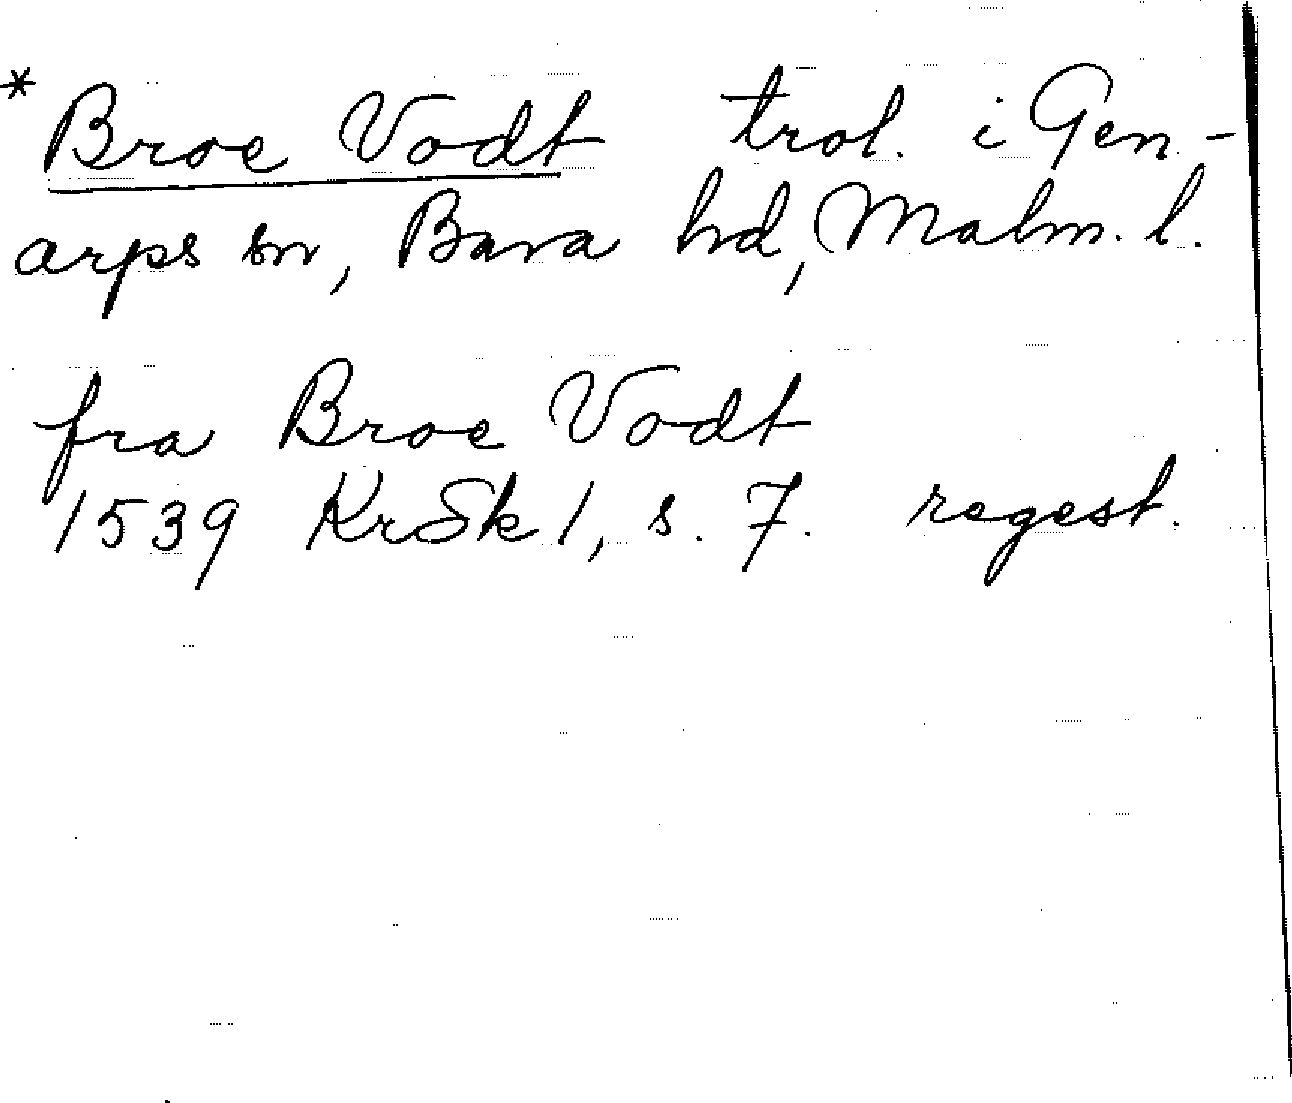 * Broe Vodt trol. i Gen-
arps sn, Bara hd, Malm. l.
fra Broe Vodt
1539 KrSk 1, s. 7. regest.